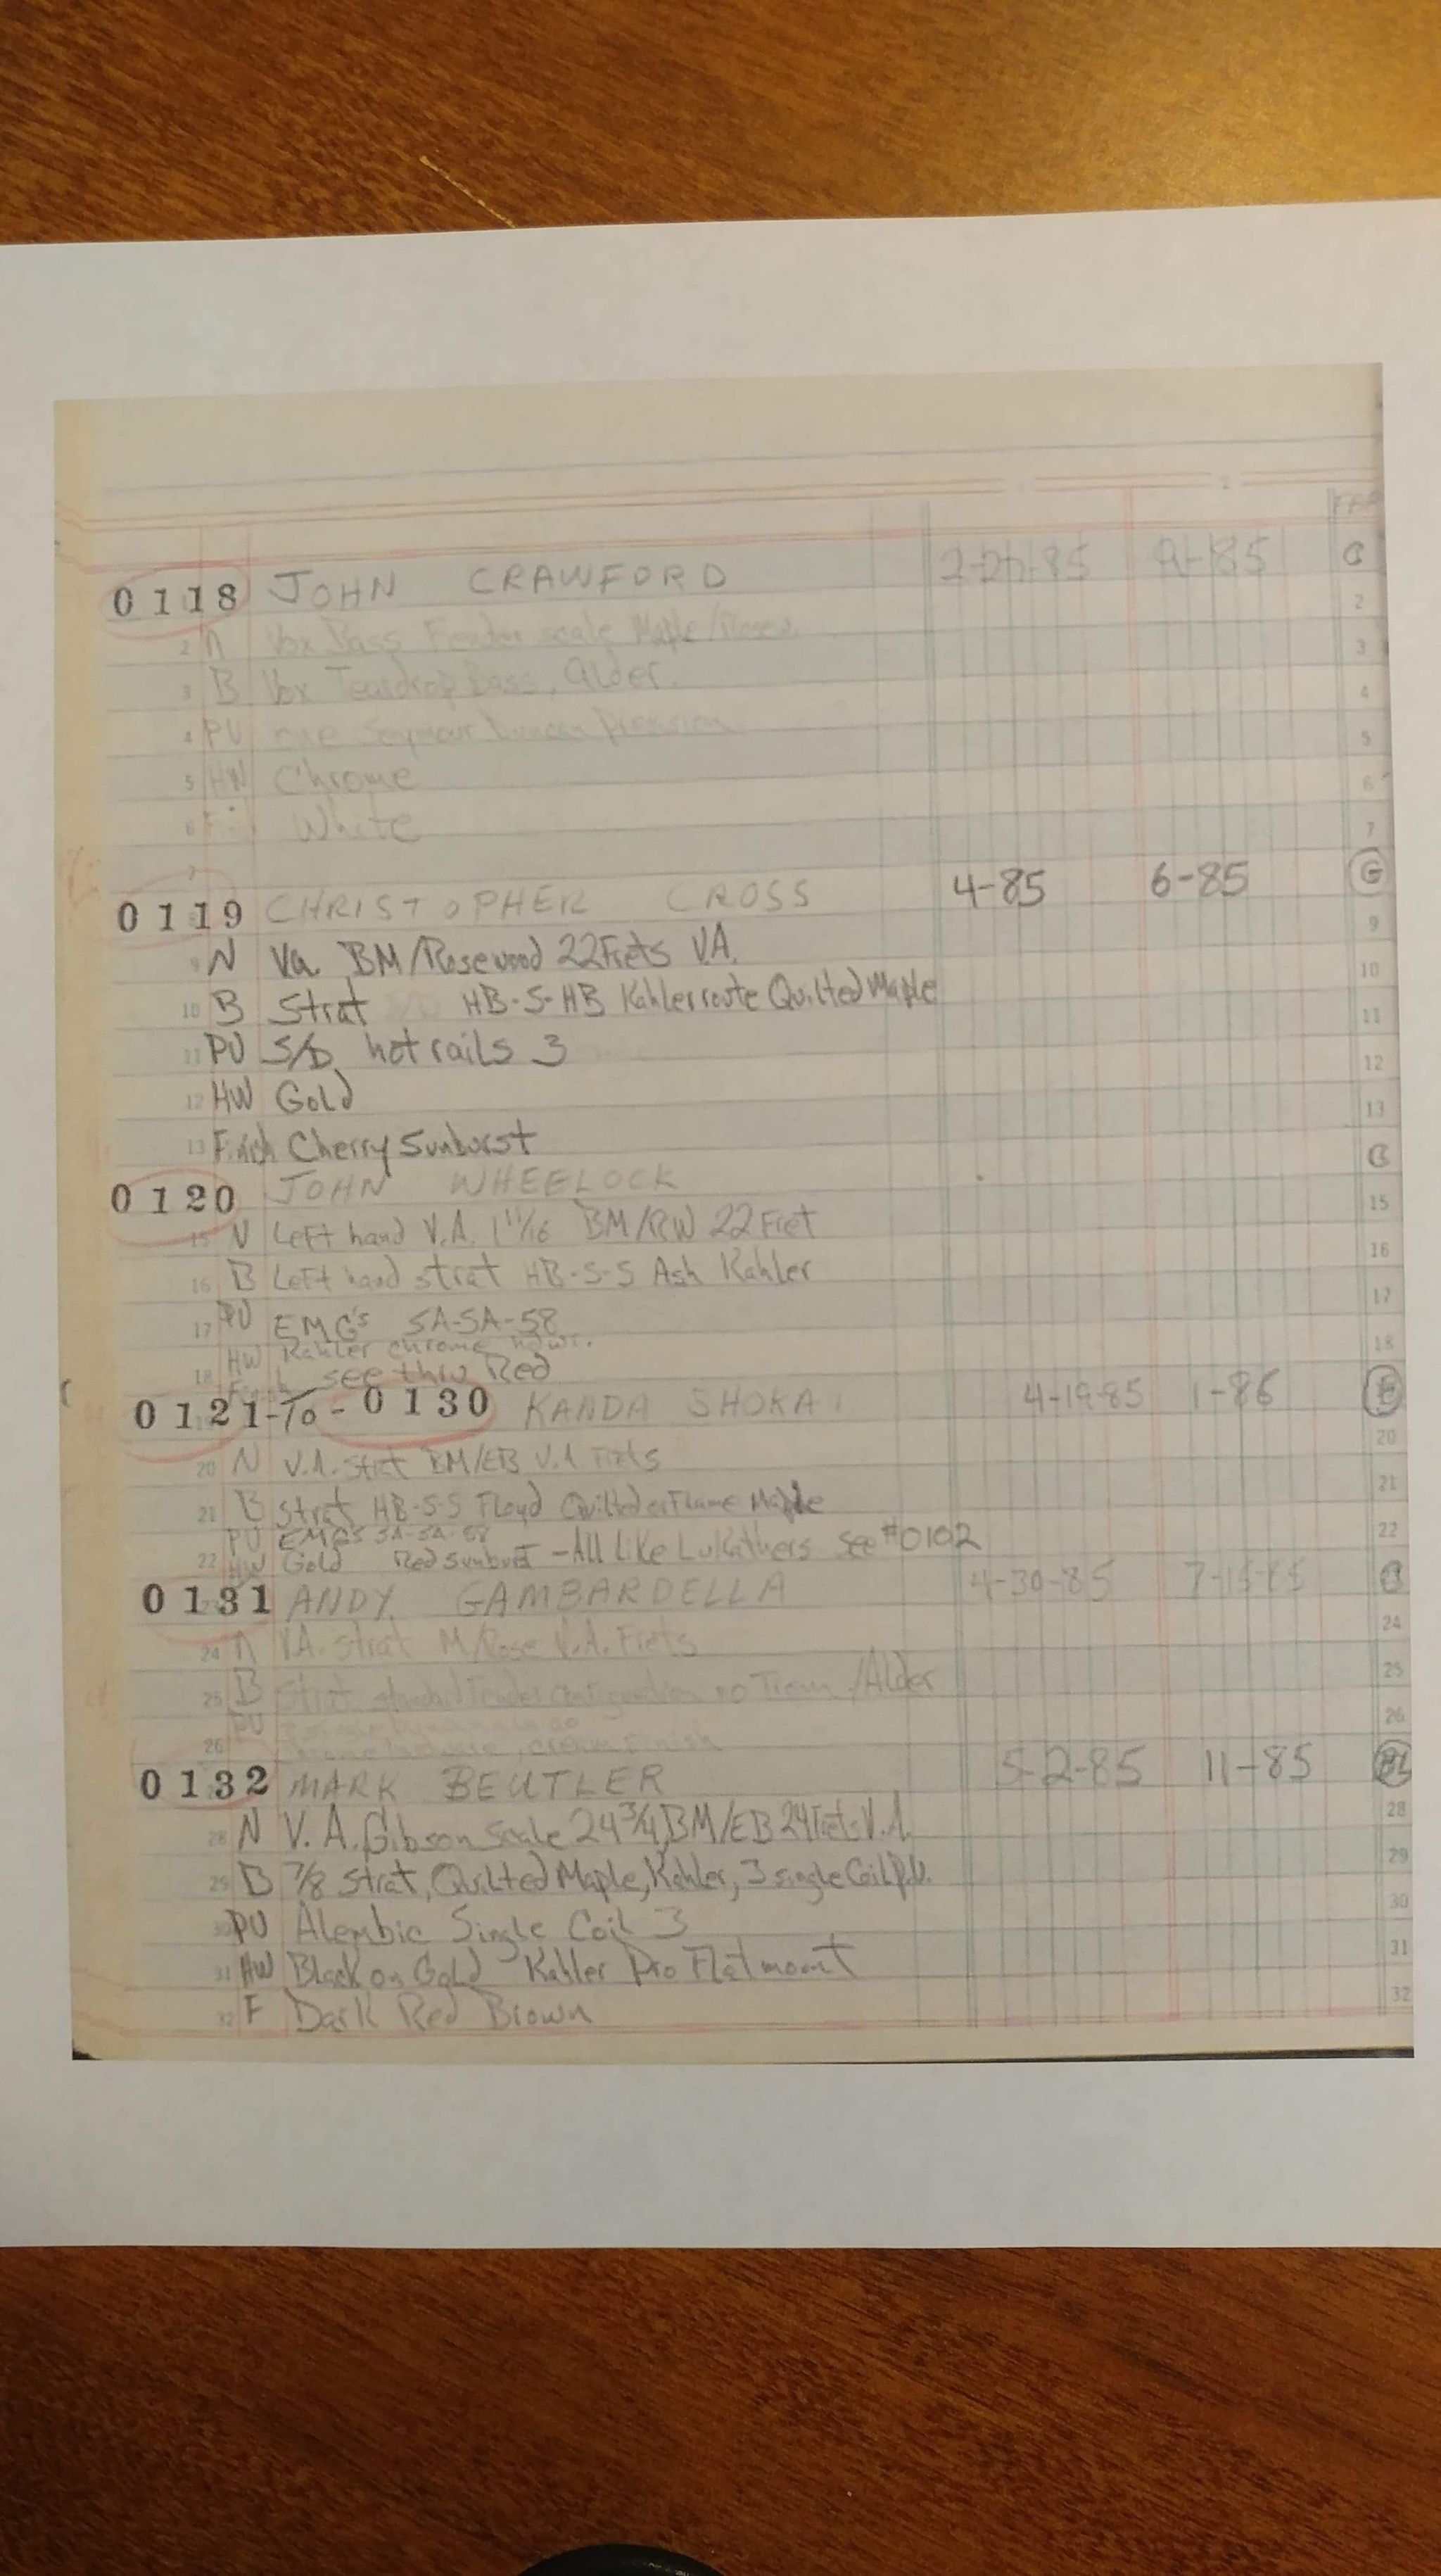 1 2
0118 JOHN CRAWFORD 9-85 C
2 N Vox Bass Fender scale Maple/Rosew. 2
3 B Vox Teardrop Bass, Alder. 3
4 PU one Seymour Duncan Precision 4
5 HW Chrome 5
6 F White 6
7 7
0119 CHRISTOPHER CROSS 4-85 6-85 G
9 N Va. BM/Rosewood 22 Frets V.A. 9
10 B Strat HB-S-HB Kahler route Quilted Maple 10
11 PU S/D hot rails 3 11
12 HW Gold 12
13 Finish Cherry Sunburst 13
0120 JOHN WHEELOCK
15 N Left hand V.A. 1 11/16 BM/RW 22 Fret 15
16 B Left hand strat HB-S-S Ash Kahler 16
17 PU EMG's SA-SA-58 17
18 HW Kahler chrome hdwr. 18
Finish see thru Red
0121-To-0130 KANDA SHOKAI 4-19-85 1-86
20 N V.A. Strat BM/EB V.A Frets 20
21 B Strat HB-S-S Floyd Quilted or Flame Maple 21
PU EMG's SA-SA-58
22 HW Gold Red Sunburst - All Like Lukathers See #0102 22
0131 ANDY GAMBARDELLA 4-30-85 7-15-85
24 N V.A. strat M/Rose V.A. Frets 24
25 B Strat standard Fender configuration no Trem /Alder 25
PU 3 single
26 hardware, cream Finish 26
0132 MARK BEUTLER 5-2-85 11-85
28 N V.A. Gibson scale 24 3/4, BM/EB 24 Frets V.A. 28
29 B 7/8 Strat, Quilted Maple, Kahler, 3 single Coil P.U. 29
30 PU Alembic Single Coil 3 30
31 HW Black on Gold Kahler Pro Flatmount 31
32 F Dark Red Brown 32